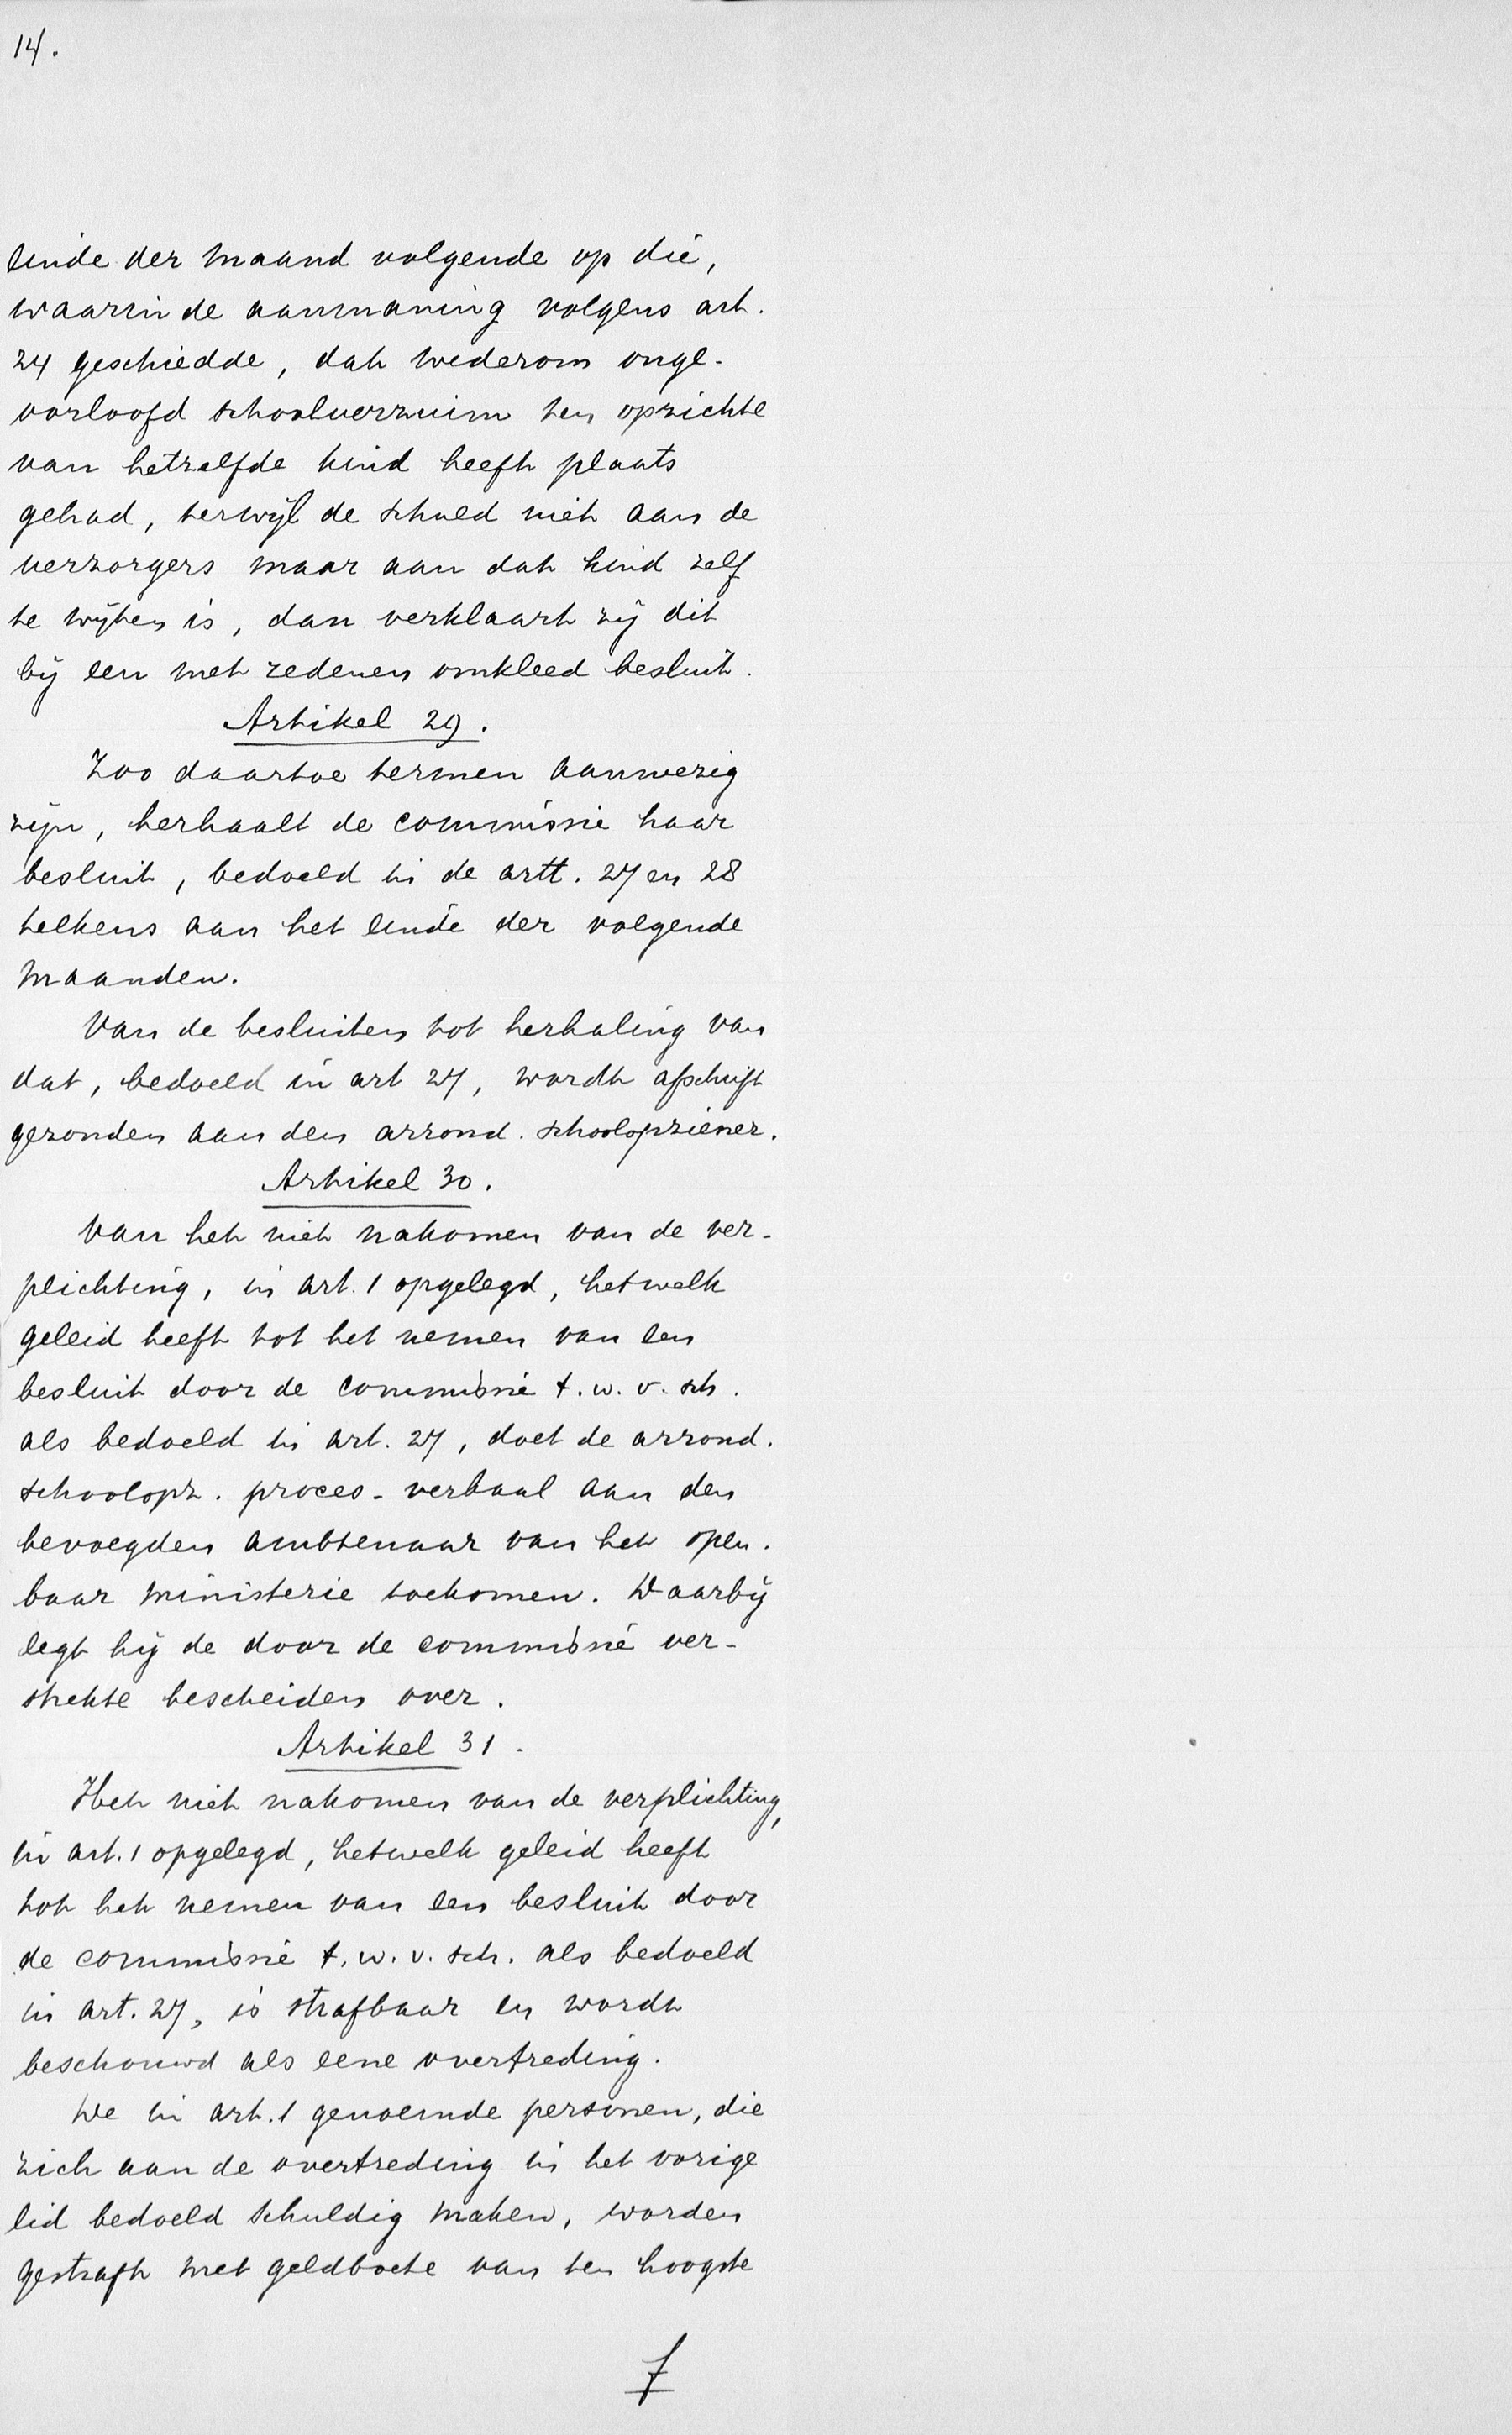 14.
einde der maand volgende op die,
waarin de aanmaning volgens art.
24 geschiedde, dat wederom onge-
oorloofd schoolverzuim ten opzichte
van hetzelfde kind heeft plaats
gehad, terwijl de schuld niet aan de
verzorgers maar aan dat kind zelf
te wijten is, dan verklaart zij dit
bij een met redenen omkleed besluit.
Artikel 29.
Zoo daartoe termen aanwezig
zijn, herhaalt de commissie haar
besluit, bedoeld in de artt. 27 en 28
telkens aan het einde der volgende
maanden.
Van de besluiten tot herhaling van
dat, bedoeld in art 27, wordt afschrift
gezonden aan den arrond. schoolopziener.
Artikel 30.
Van het niet nakomen van de ver-
plichting, in art. 1 opgelegd, hetwelk
geleid heeft tot het nemen van een
besluit door de commissie t. w. v. sch.
als bedoeld in art. 27, doet de arrond.
schoolopz. proces-verbaal aan den
bevoegden ambtenaar van het open-
baar ministerie toekomen. Daarbij
legt hij de door de commissie ver-
strekte bescheiden over.
Artikel 31.
Het niet nakomen van de verplichting,
in art. 1 opgelegd, hetwelk geleid heeft
tot het nemen van een besluit door
de commissie t. w. v. sch. als bedoeld
in art. 27, is strafbaar en wordt
beschouwd als eene overtreding.
De in art. 1 genoemde personen, die
zich aan de overtreding in het vorige
lid bedoeld schuldig maken, worden
gestraft met geldboete van ten hoogste